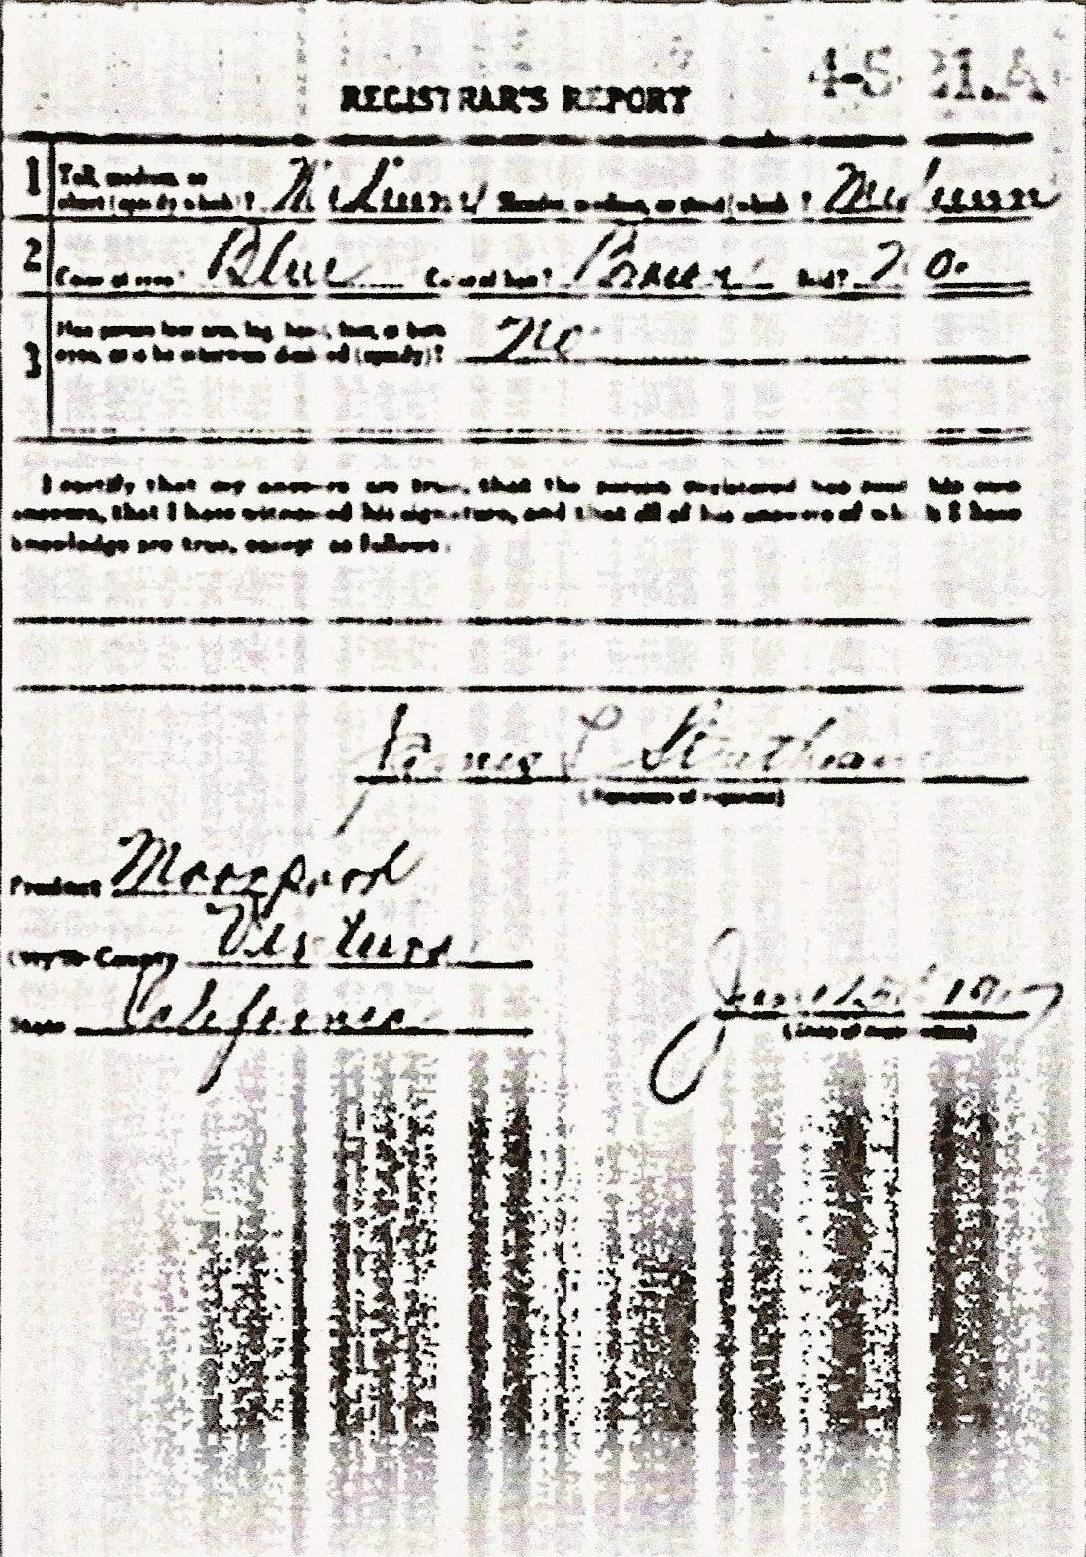 REGISTRAR'S REPORT
1 Tall, medium, or
short (specify which)? Medium Slender, medium, or stout (which)? Medium
2 Color of eyes? Blue Color of hair? Brown Bald? No.
3 Has person lost arm, leg, hand, foot, or both
eyes, or is he otherwise disabled (specify)? No
I certify that my answers are true, that the person registered has read his own
answers, that I have witnessed his signature, and that all of his answers of which I have
knowledge are true, except as follows:
James L
(Signature of registrar)
Precinct Moorpark
City or County Ventura
State California
June
(Date of registration)